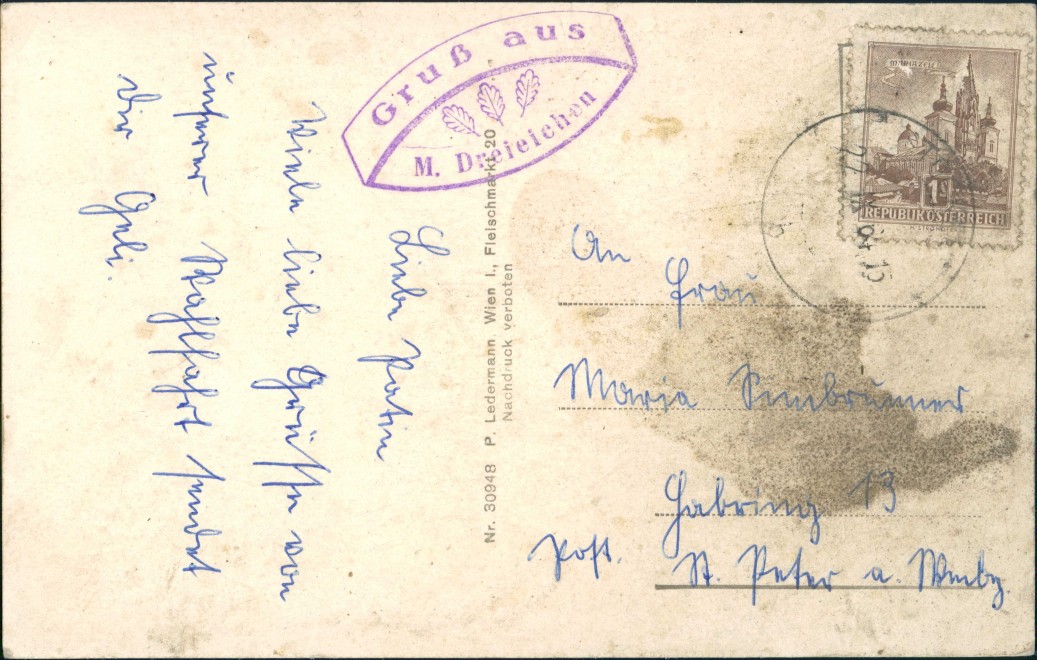 Gruß aus
M. Dreieichen
Liebe Patin
Viele liebe Grüsse von
unserer Wahlfahrt sendet
Dir Geli.
Nr. 30948 P. Ledermann Wien I., Fleischmarkt 20
Nachdruck verboten
MARIAZELL
1S
REPUBLIK ÖSTERREICH
An
Frau
Maria
13
Post. St. Peter a. Wimbg.